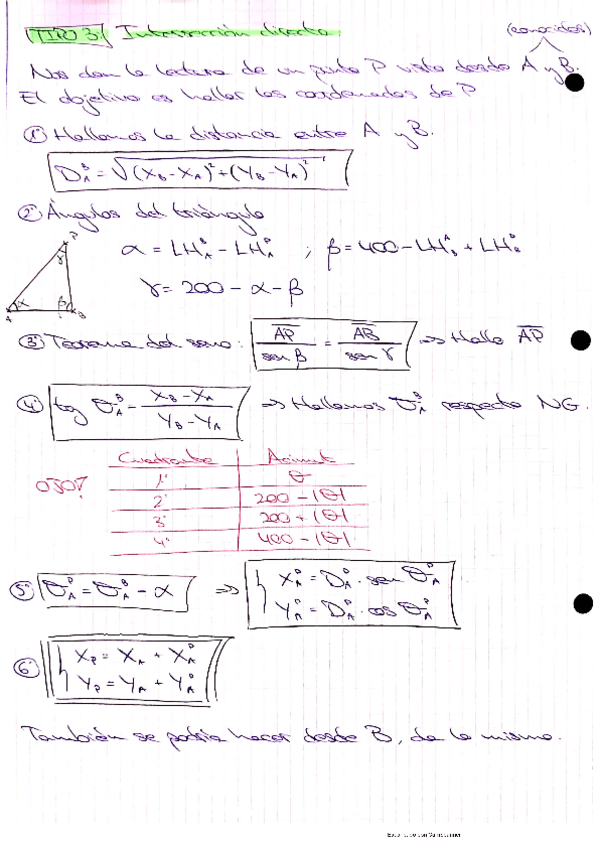 TIPO 3: Intersección directa
(conocidos)
Nos dan la lectura de un punto P visto desde A y B.
El objetivo es hallar las coordenadas de P
1º Hallamos la distancia entre A y B.
D_A^B = √(X_B - X_A)² + (Y_B - Y_A)²
2º Ángulos del triángulo
α = LH_A^B - LH_A^P ; β = 400 - LH_B^A + LH_B^P
γ = 200 - α - β
P γ α β A B
3º Teorema del seno: AP / sen β = AB / sen γ => Hallo AP
4º tg θ_A^B = X_B - X_A / Y_B - Y_A => Hallamos θ_A^B respecto NG.
OJO!
Cuadrante Azimut
1º θ
2º 200 - |θ|
3º 200 + |θ|
4º 400 - |θ|
5º θ_A^P = θ_A^B - α => { X_A^P = D_A^P · sen θ_A^P
Y_A^P = D_A^P · cos θ_A^P
6º { X_P = X_A + X_A^P
Y_P = Y_A + Y_A^P
También se podría hacer desde B, da lo mismo.